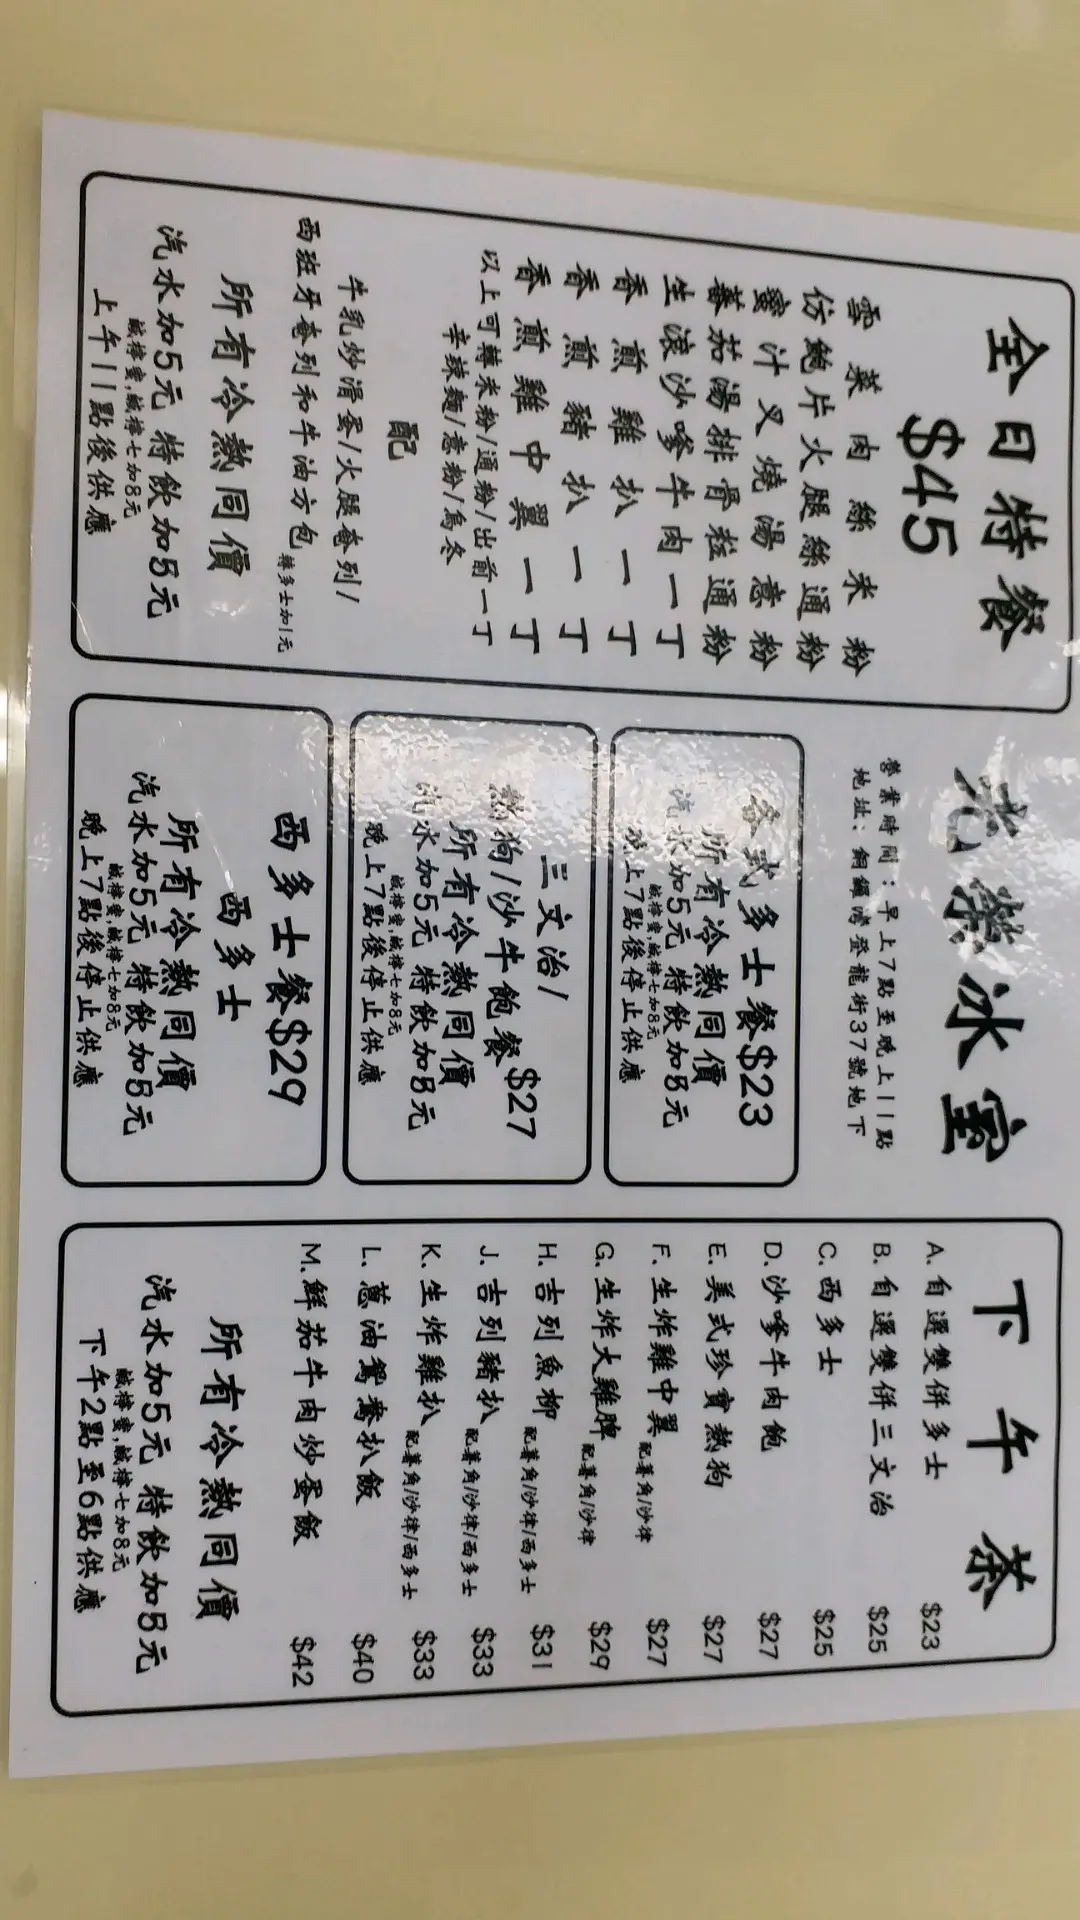 全日特餐
$45
雪菜肉絲米粉
仿鮑片火腿絲通粉
蜜汁叉燒湯意粉
蕃茄湯排骨粒通粉
生滾沙嗲牛肉一丁
香煎雞扒一丁
香煎豬扒一丁
香煎雞中翼一丁
以上可轉米粉/通粉/出前一丁
辛辣麵/意粉/烏冬
配
牛乳炒滑蛋/火腿奄列/
西班牙奄列和牛油方包 轉多士加1元
所有冷熱同價
汽水加5元 特飲加5元
鹹檸蜜,鹹檸七加8元
上午11點後供應
光榮冰室
營業時間:早上7點至晚上11點
地址:銅鑼灣登龍街37號地下
各式多士餐$23
所有冷熱同價
汽水加5元 特飲加5元
鹹檸蜜,鹹檸七加8元
晚上7點後停止供應
三文治/
熱狗/沙牛飽餐$27
所有冷熱同價
汽水加5元 特飲加5元
鹹檸蜜,鹹檸七加8元
晚上7點後停止供應
西多士餐$29
西多士
所有冷熱同價
汽水加5元 特飲加5元
鹹檸蜜,鹹檸七加8元
晚上7點後停止供應
下午茶
A.自選雙併多士 $23
B.自選雙併三文治 $25
C.西多士 $25
D.沙嗲牛肉飽 $27
E.美式珍寶熱狗 $27
F.生炸雞中翼 配薯角/沙律 $27
G.生炸大雞脾 配薯角/沙律 $29
H.吉列魚柳 配薯角/沙律/西多士 $31
J.吉列豬扒 配薯角/沙律/西多士 $33
K.生炸雞扒 配薯角/沙律/西多士 $33
L.蔥油鴛鴦扒飯 $40
M.鮮茄牛肉炒蛋飯 $42
所有冷熱同價
汽水加5元 特飲加5元
鹹檸蜜,鹹檸七加8元
下午2點至6點供應